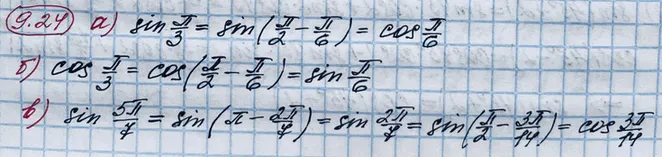 9.24 а) sin π/3 = sin(π/2 - π/6) = cos π/6
б) cos π/3 = cos(π/2 - π/6) = sin π/6
в) sin 5π/7 = sin(π - 2π/7) = sin 2π/7 = sin(π/2 - 3π/14) = cos 3π/14